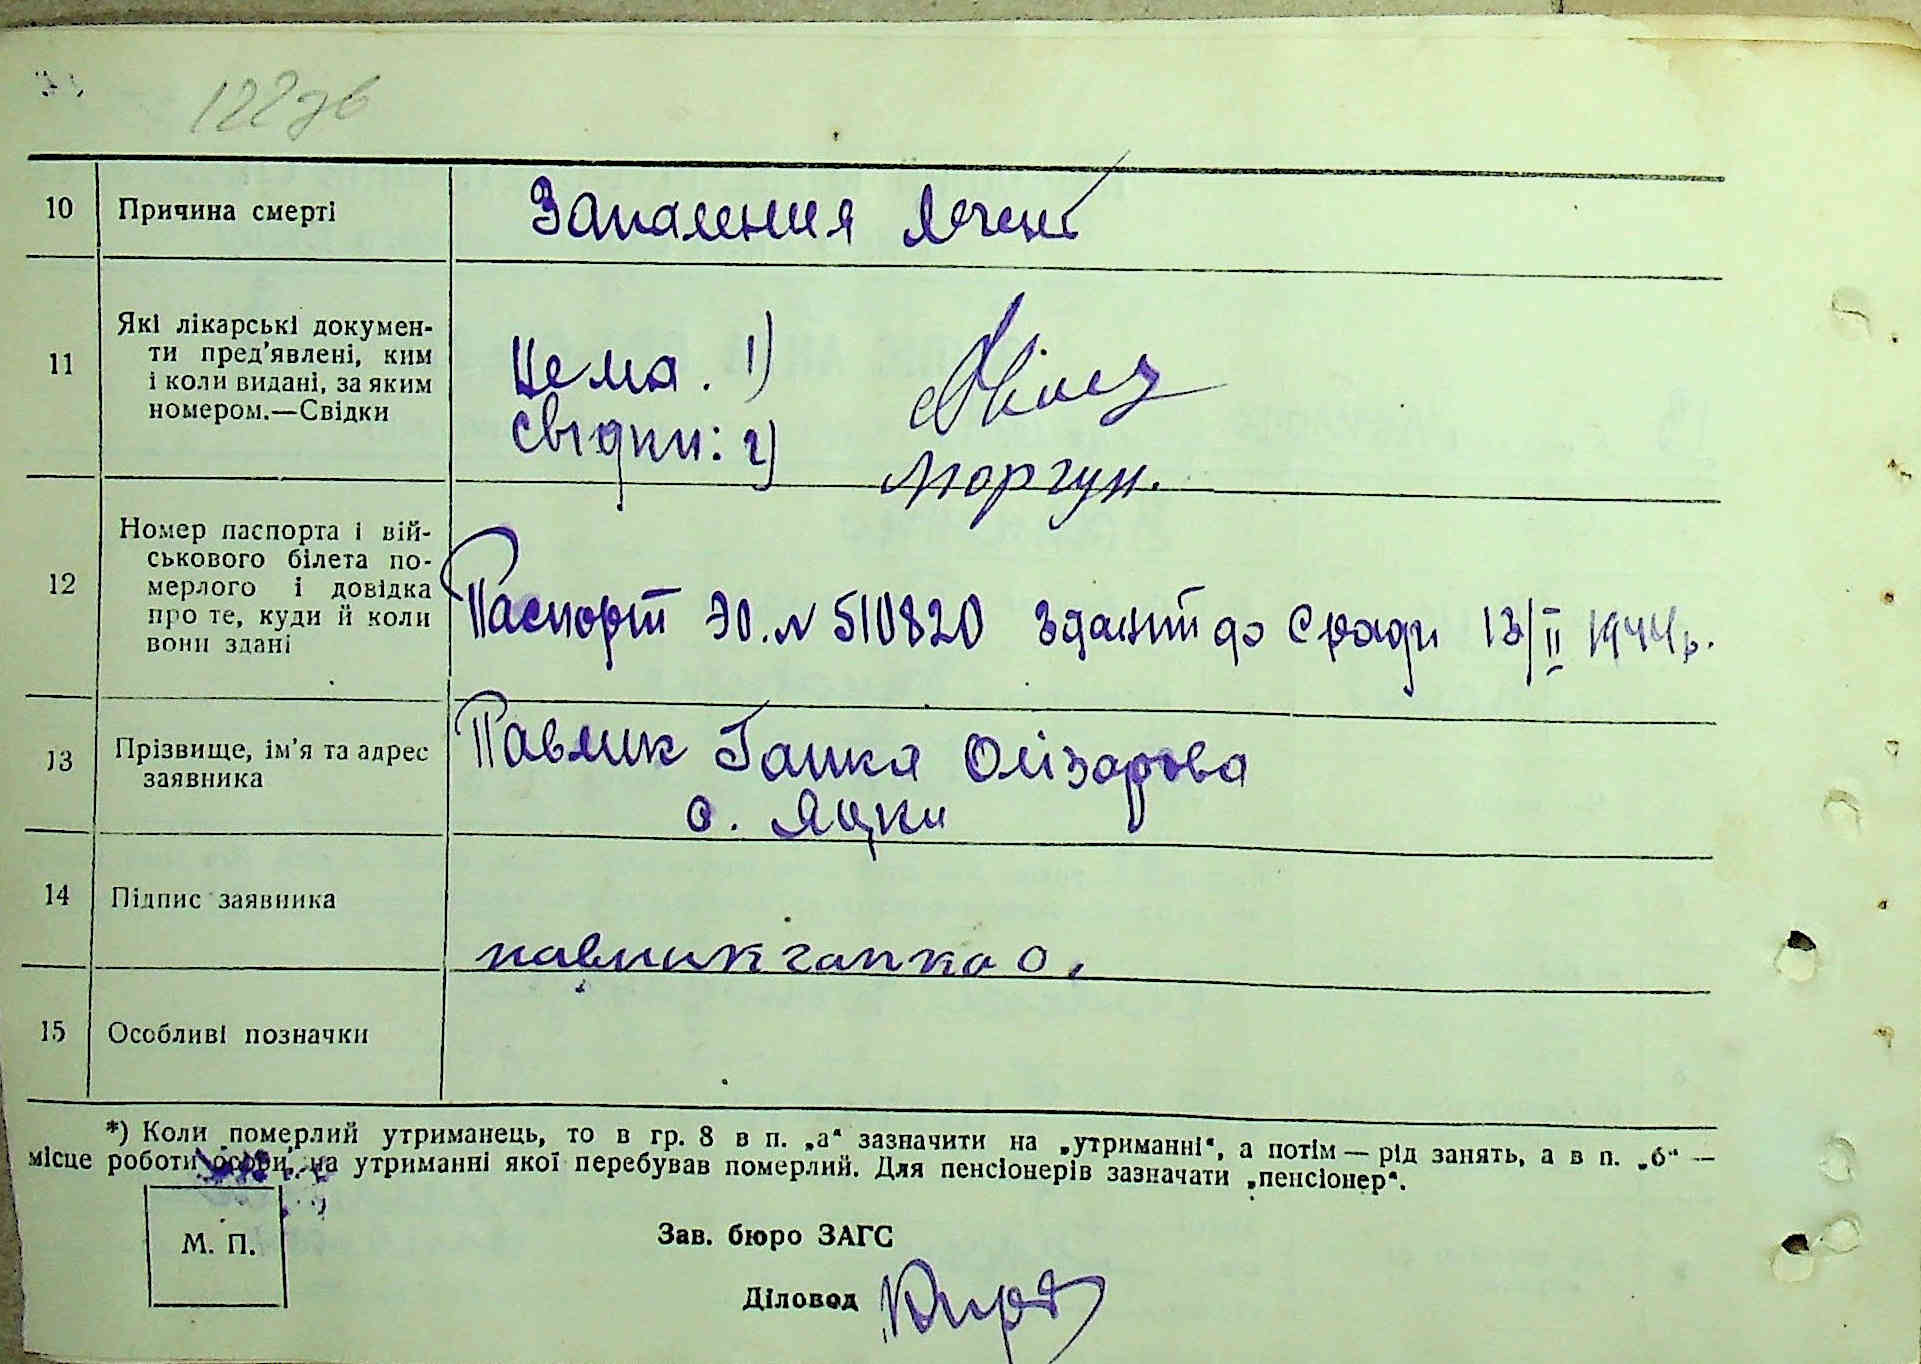 122зв
10 Причина смерті Запалення легень
11 Які лікарські докумен-
ти пред'явлені, ким
і коли видані, за яким
номером.—Свідки
Нема. 1)
Свідки: 2) Моргун.
12 Номер паспорта і вій-
ськового білета по-
мерлого і довідка
про те, куди й коли
вони здані
Паспорт ЭО. № 510820 Зданий до С ради 13/II 1944 р.
13 Прізвище, ім'я та адрес
заявника
Павлик Ганка Олізарова
с. Яцки
14 Підпис заявника
павлик ганка О.
15 Особливі позначки
*) Коли померлий утриманець, то в гр. 8 в п. „а“ зазначити на „утриманні“, а потім — рід занять, а в п. „б“ —
місце роботи особи, на утриманні якої перебував померлий. Для пенсіонерів зазначати „пенсіонер“.
М. П.
Зав. бюро ЗАГС
Діловод